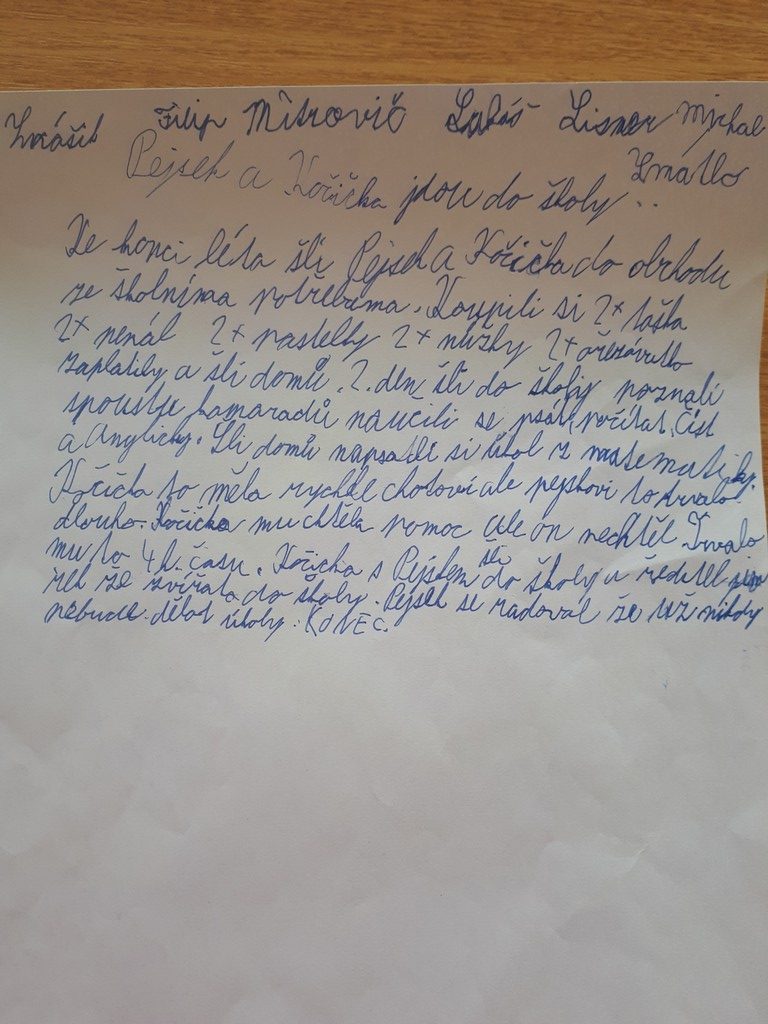 Filip Mitrovič Lukáš Lismer Michal
Pejsek a Kočička jdou do školy..
Ke konci léta šli Pejsek a Kočička do obchodu
ze školníma potřebama. Koupili si 2x taška
2x penál 2x pastelky 2x nůžky 2x ořezávatko
zaplatily a šli domů. 2. den šli do školy poznali
spoustu kamaradů naucili se psát, počítat, číst
a Anglicky. Šli domů napsatli si úkol z matematiky.
Kočička to měla rychle hotoví ale pejskovi to trvalo
dlouho. Kočička mu chtěla pomoc ale on nechtěl Trvalo
mu to 4 h. času. Kočicka s Pejskem šli do školy a ředitel jim
řek že zvířata do školy. Pejsek se radoval že už nikdy
nebude dělat úkoly. KONEC.